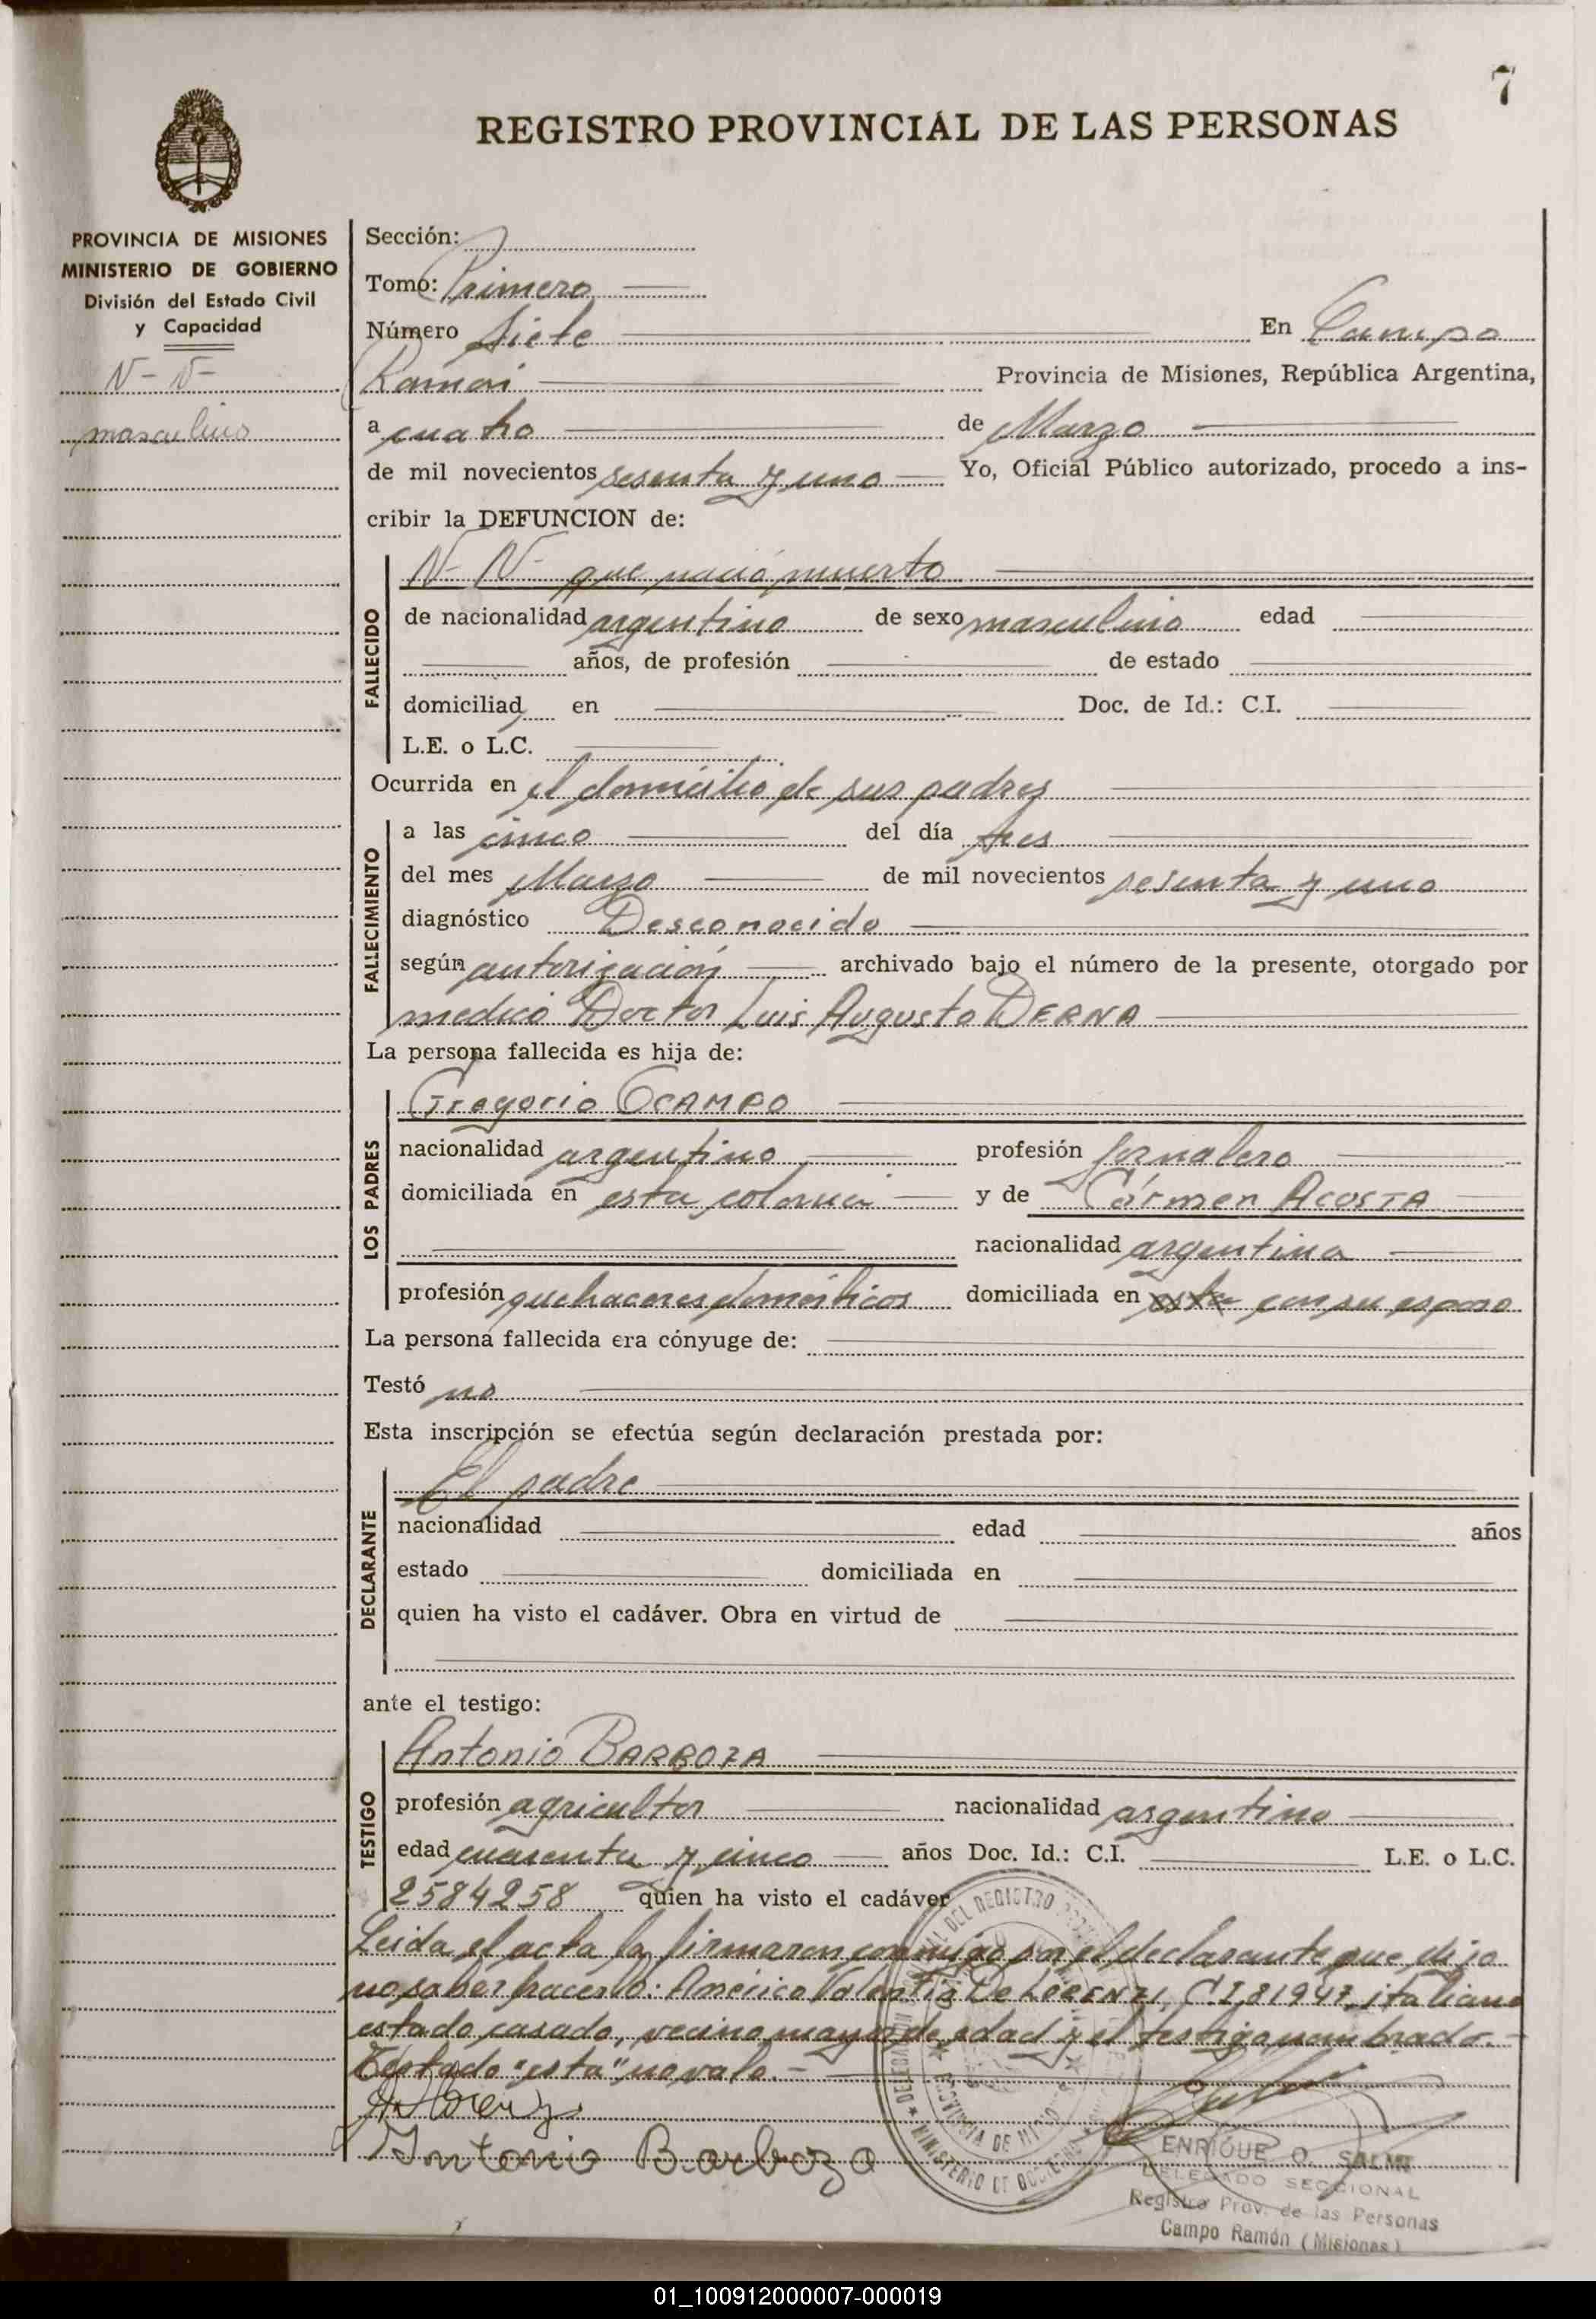 7
REGISTRO PROVINCIAL DE LAS PERSONAS
PROVINCIA DE MISIONES
MINISTERIO DE GOBIERNO
División del Estado Civil
y Capacidad
N- N-
masculino
Sección:
Tomo: Primero
Número siete En Campo
Ramón Provincia de Misiones, República Argentina,
a cuatro de Marzo
de mil novecientos sesenta y uno Yo, Oficial Público autorizado, procedo a ins-
cribir la DEFUNCION de:
FALLECIDO
N- N- que nació muerto
de nacionalidad argentino de sexo masculino edad
años, de profesión de estado
domiciliad en Doc. de Id.: C.I.
L.E. o L.C.
Ocurrida en el domicilio de sus padres
FALLECIMIENTO
a las cinco del día tres
del mes Marzo de mil novecientos sesenta y uno
diagnóstico Desconocido
según autorización archivado bajo el número de la presente, otorgado por
medico Doctor Luis Augusto DERNA
La persona fallecida es hija de:
LOS PADRES
Gregorio OCAMPO
nacionalidad argentino profesión jornalero
domiciliada en esta colonia y de Cármen ACOSTA
nacionalidad argentina
profesión quehaceres domésticos domiciliada en esta con su esposo
La persona fallecida era cónyuge de:
Testó no
Esta inscripción se efectúa según declaración prestada por:
DECLARANTE
El padre
nacionalidad edad años
estado domiciliada en
quien ha visto el cadáver. Obra en virtud de
ante el testigo:
TESTIGO
Antonio BARBOZA
profesión agricultor nacionalidad argentino
edad cuarenta y cinco años Doc. Id.: C.I. L.E. o L.C.
2584258 quien ha visto el cadáver
Leida el acta la firmaron conmigo por el declarante que dijo
no saber hacerlo: Américo Valentin De LORENZI, C.I. 81947, italiano
estado casado, vecino mayor de edad y el testigo nombrado.-
Testado "esta" no vale.-
Antonio Barboza
MINISTERIO DE GOBIERNO
PROVINCIA DE MISIONES
ENRIQUE O. SALMI
DELEGADO SECCIONAL
Registro Prov. de las Personas
Campo Ramón (Misiones)
01_100912000007-000019